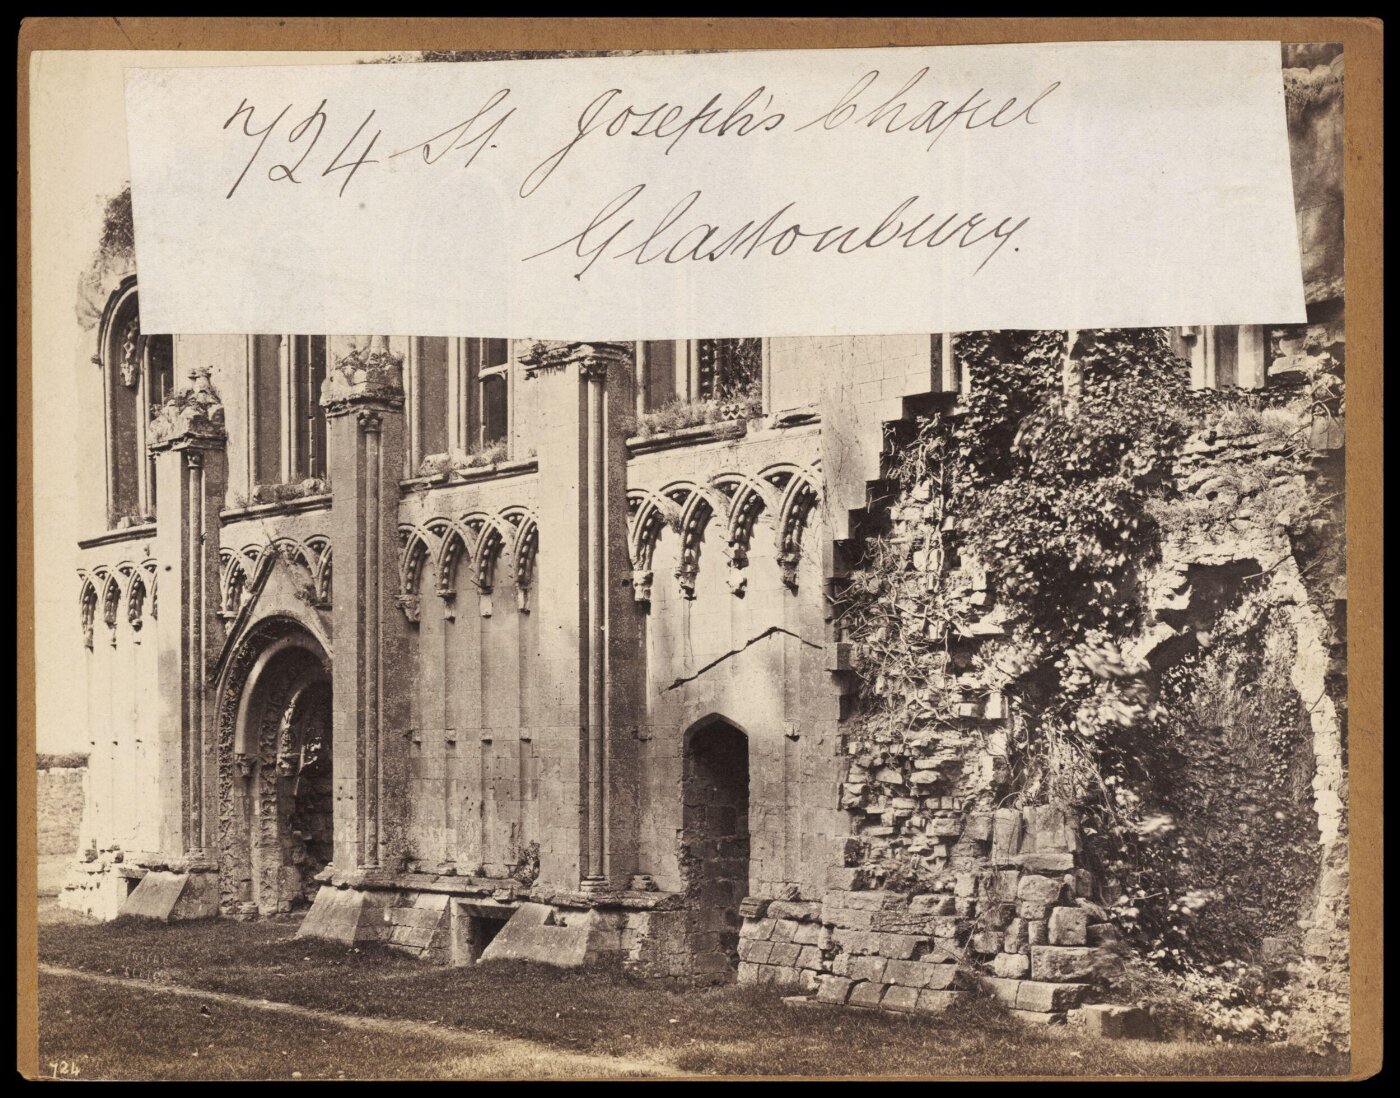 724 St. Joseph's Chapel
Glastonbury.
724